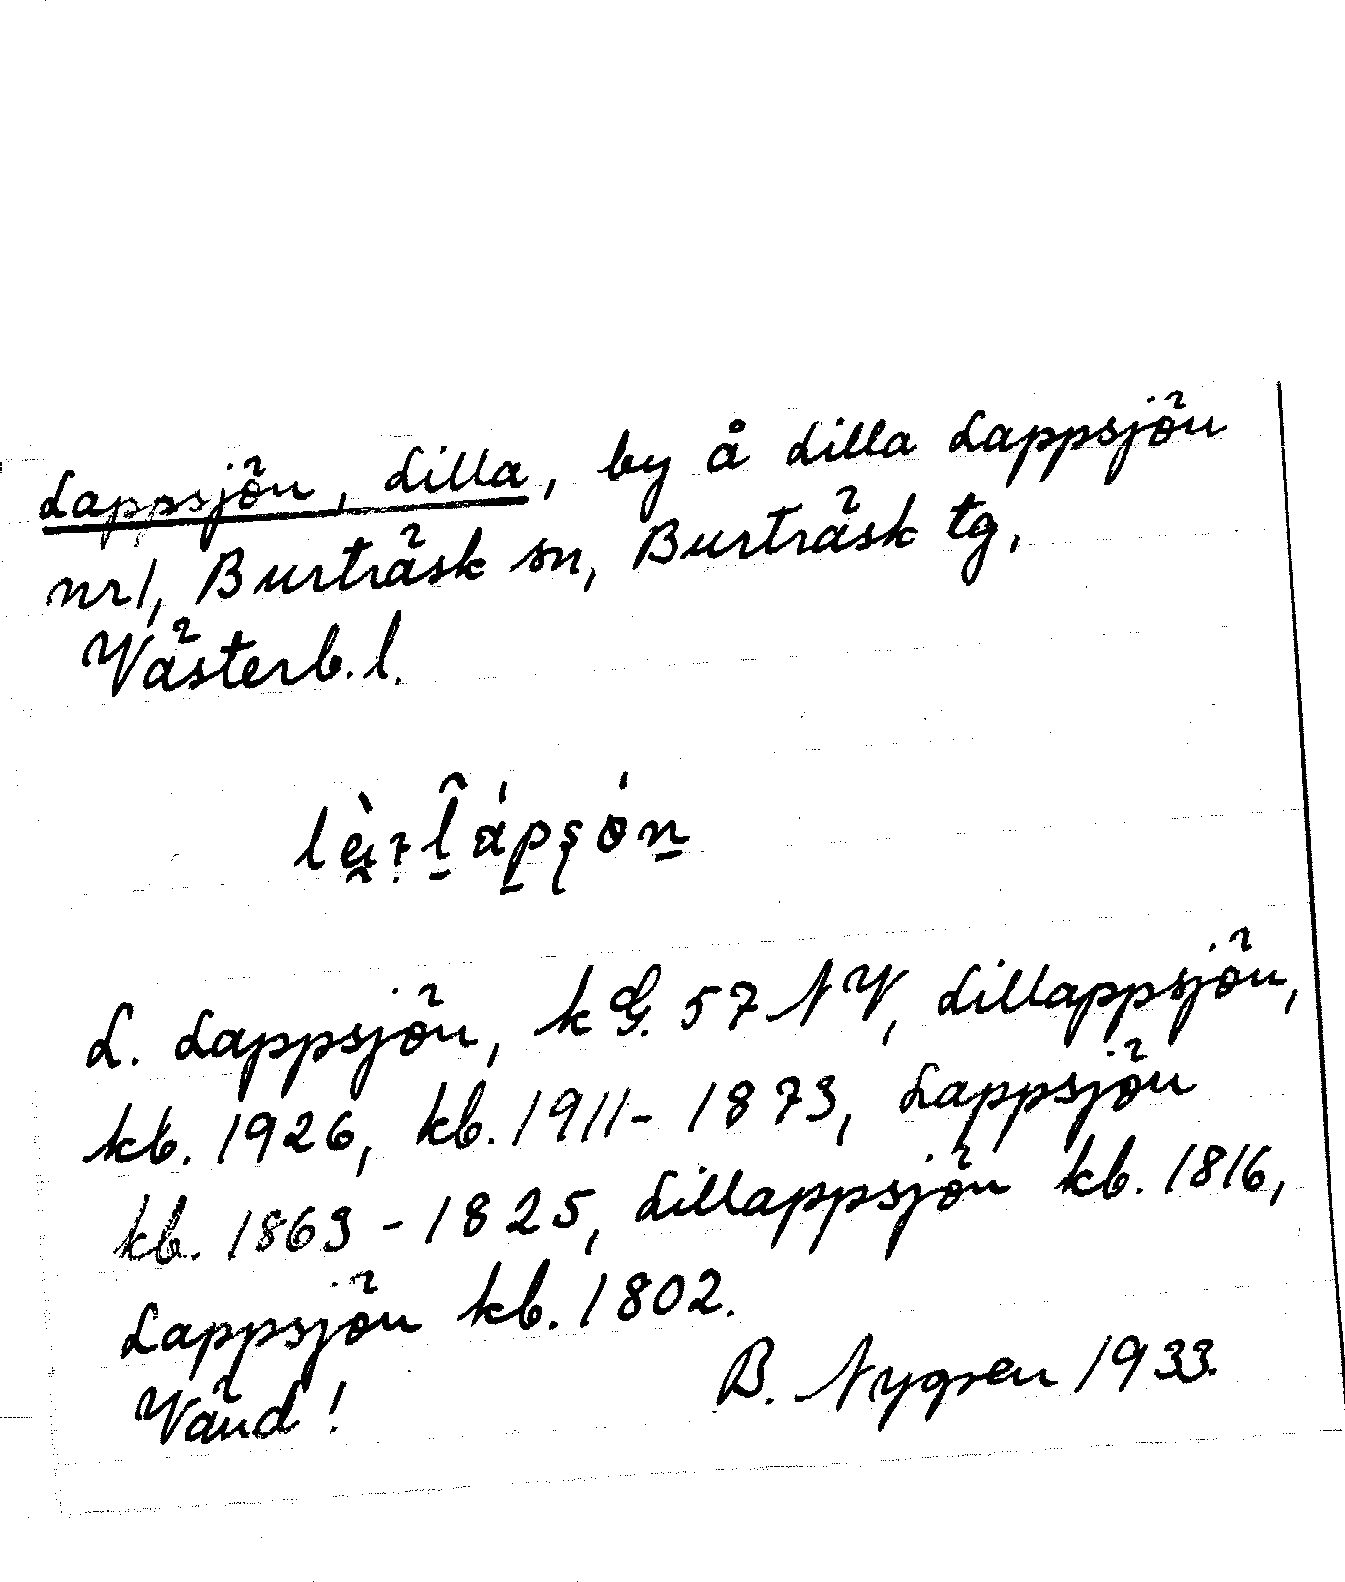 Lappsjön, Lilla, by å Lilla Lappsjön
nr 1, Burträsk sn, Burträsk tg,
Västerb. l.
L. Lappsjön, kG. 57 NV, Lillappsjön,
kb. 1926, kb. 1911-1873, Lappsjön
kb. 1863-1825, Lillappsjön kb. 1816,
Lappsjön kb. 1802.
Vänd!
B. Nygren 1933.